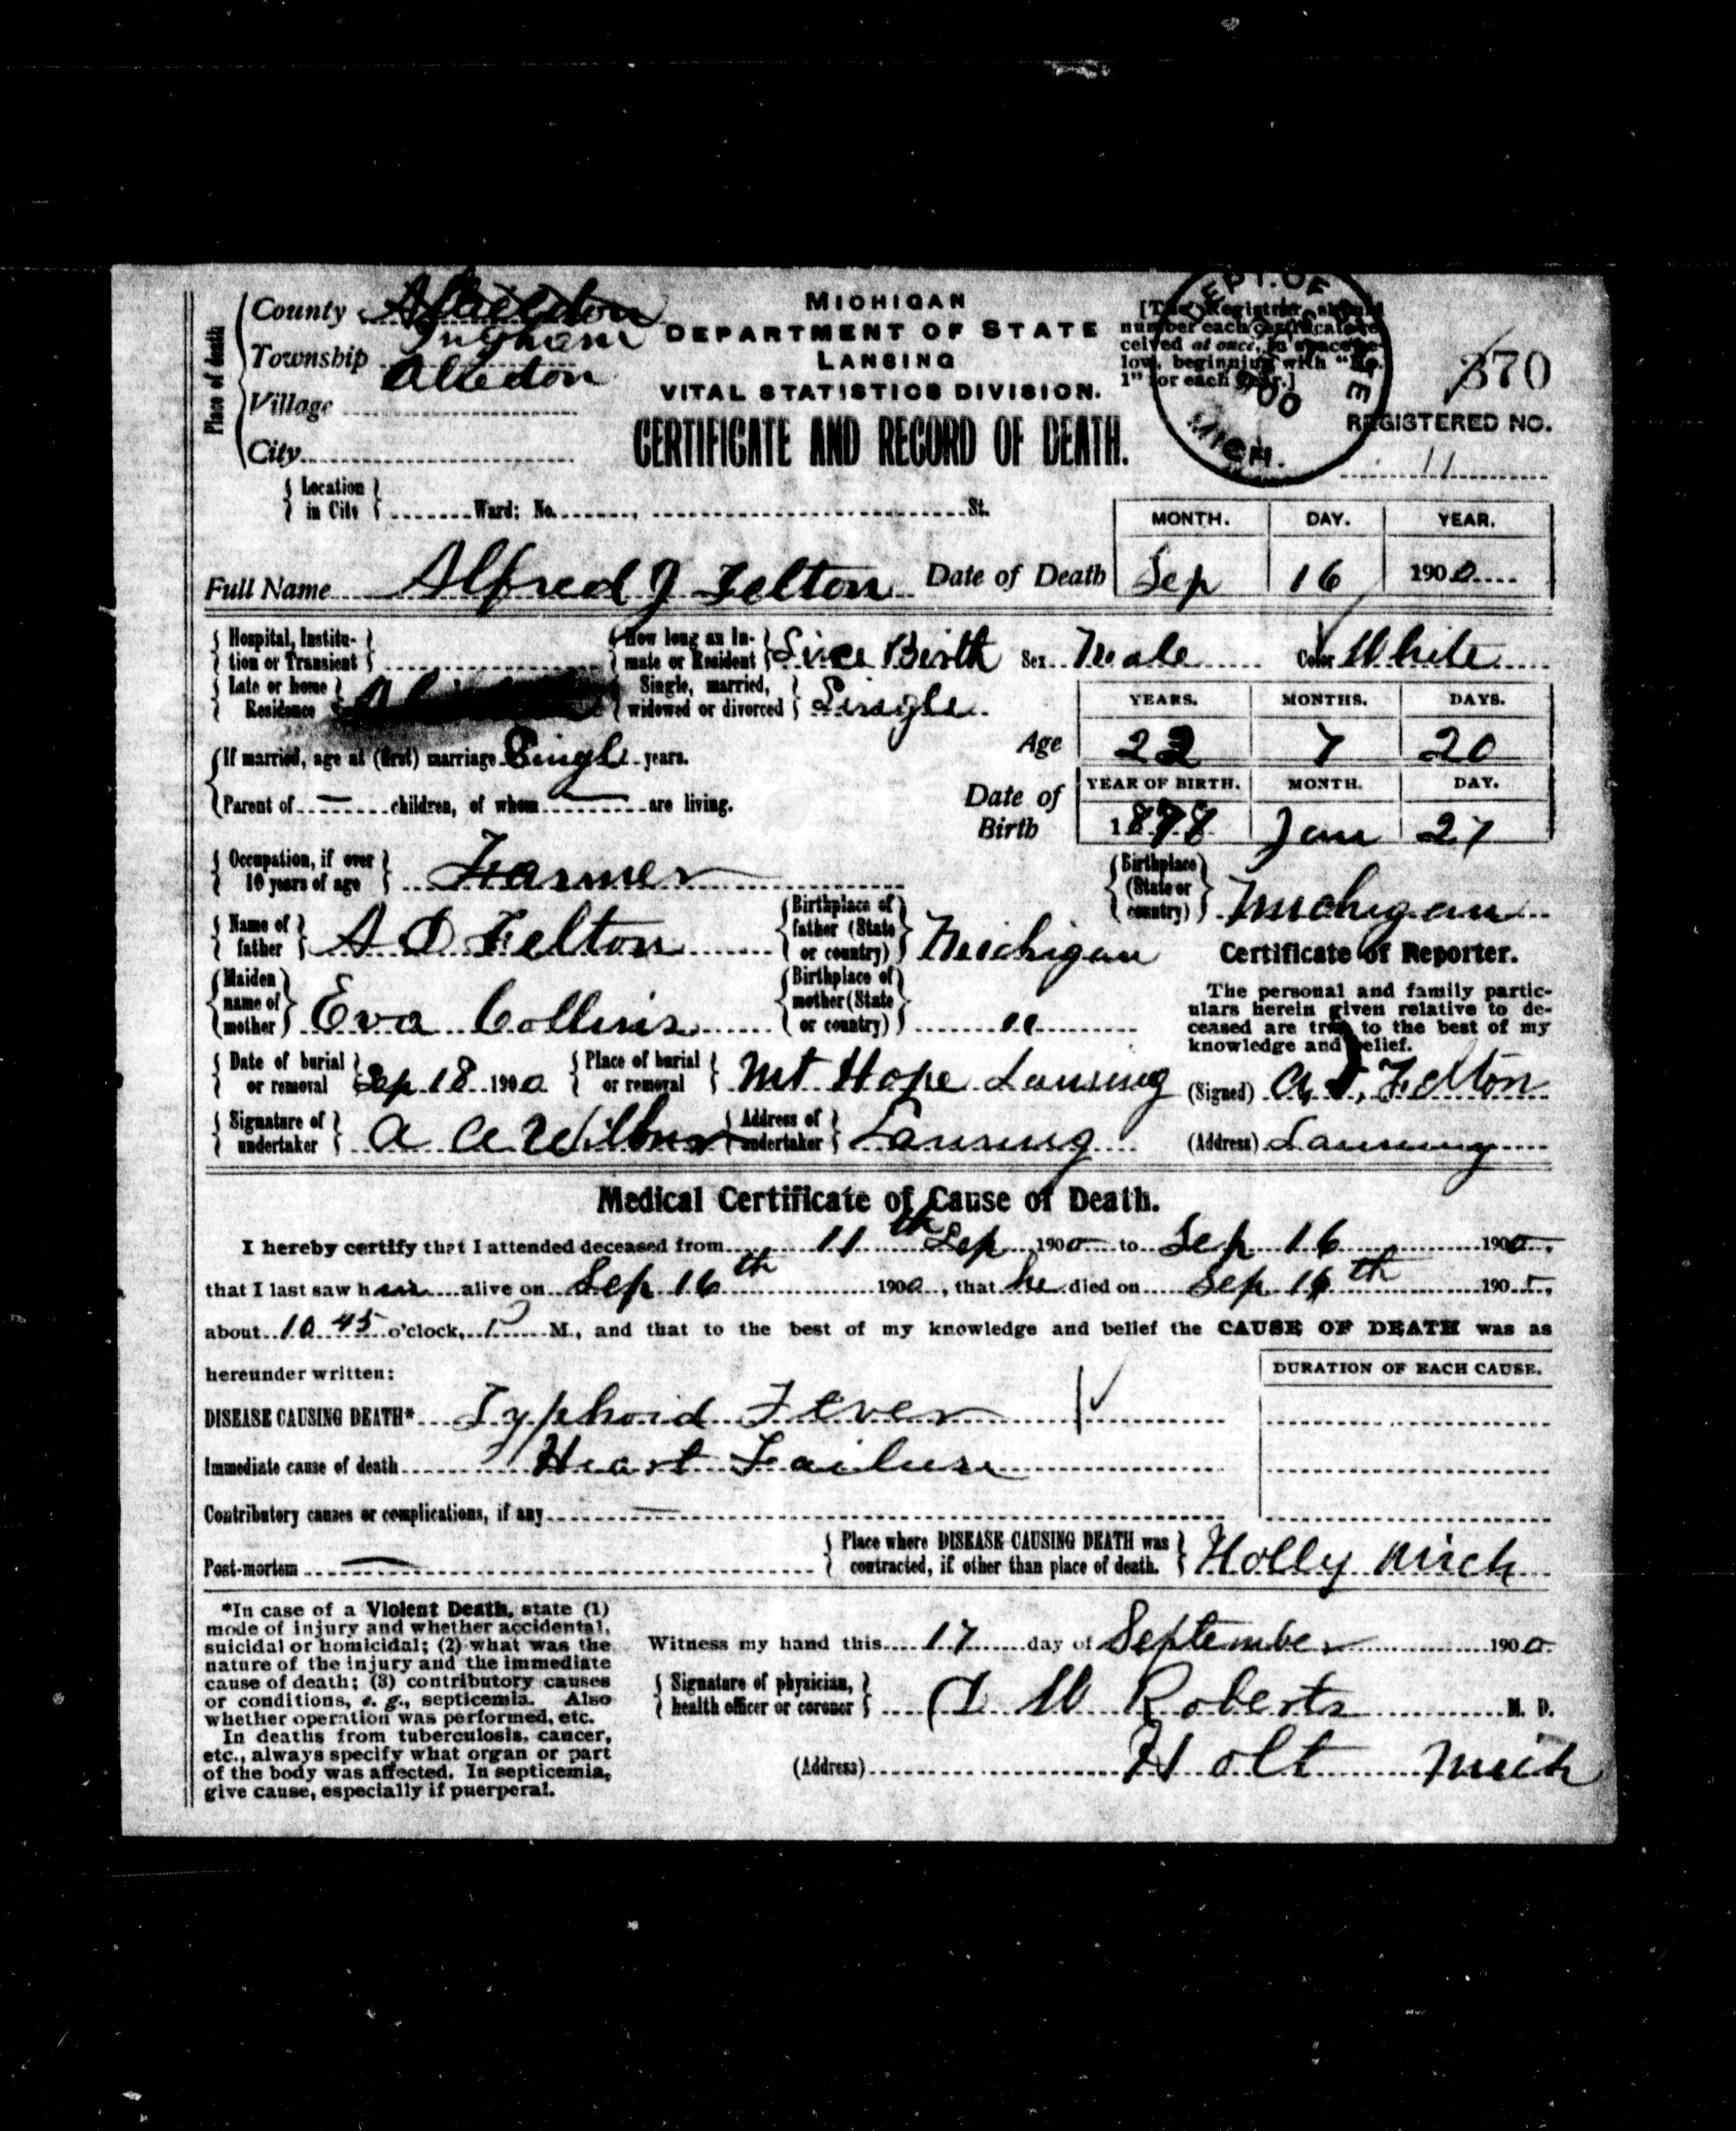 Place of death
County Alaiedon
Ingham
Township Alledon
Village
City
MICHIGAN
DEPARTMENT OF STATE
LANSING
VITAL STATISTICS DIVISION.
CERTIFICATE AND RECORD OF DEATH.
[The Registrar should
number each certificate re-
ceived at once, in space be-
low, beginning with "No.
1" for each year.]
DEPT. OF
1900
MICH.
370
REGISTERED NO.
11
Location in City Ward; No. St.
MONTH. DAY. YEAR.
Full Name Alfred J Felton Date of Death Sep 16 1900
Hospital, Institu-tion or Transient How long an In-mate or Resident Since Birth Sex Male Color White
Late or home Residence Single, married, widowed or divorced Single
YEARS. MONTHS. DAYS.
If married, age at (first) marriage Single years. Age 22 7 20
YEAR OF BIRTH. MONTH. DAY.
Parent of — children, of whom — are living. Date of Birth 1878 Jan 27
Occupation, if over 10 years of age Farmer Birthplace (State or country) Michigan
Name of father A D Felton Birthplace of father (State or country) Michigan
Maiden name of mother Eva Collins Birthplace of mother (State or country) "
Certificate of Reporter.
The personal and family partic-
ulars herein given relative to de-
ceased are true to the best of my
knowledge and belief.
Date of burial or removal Sep 18 1900 Place of burial or removal Mt Hope Lansing (Signed) Felton
Signature of undertaker A A Wilbur Address of undertaker Lansing (Address) Lansing
Medical Certificate of Cause of Death.
I hereby certify that I attended deceased from 11th Sep 1900 to Sep 16 1900,
that I last saw him alive on Sep 16th 1900, that he died on Sep 16th 190
about 10 45 o'clock, P M., and that to the best of my knowledge and belief the CAUSE OF DEATH was as
hereunder written:
DURATION OF EACH CAUSE.
DISEASE CAUSING DEATH* Typhoid Fever
Immediate cause of death Heart Failure
Contributory causes or complications, if any —
Post-mortem — Place where DISEASE CAUSING DEATH was contracted, if other than place of death. Holly Mich
*In case of a Violent Death, state (1)
mode of injury and whether accidental,
suicidal or homicidal; (2) what was the
nature of the injury and the immediate
cause of death; (3) contributory causes
or conditions, e. g., septicemia. Also
whether operation was performed, etc.
In deaths from tuberculosis, cancer,
etc., always specify what organ or part
of the body was affected. In septicemia,
give cause, especially if puerperal.
Witness my hand this 17 day of September 1900
Signature of physician, health officer or coroner W Roberts M. D.
(Address) Holt Mich